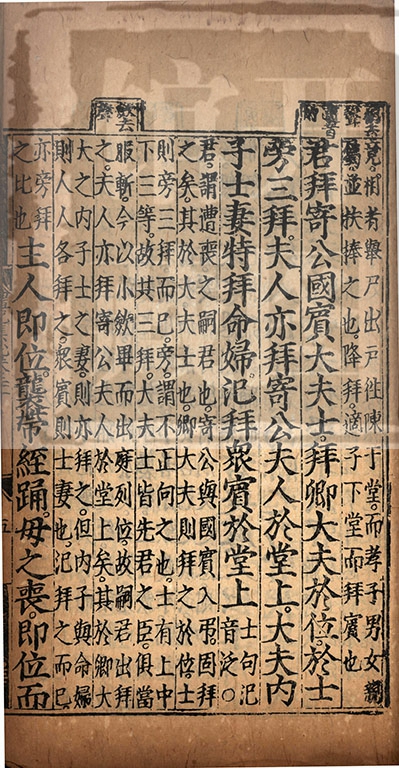 見。相者舉尸出戶徃陳于堂。而孝子男女親
屬並扶捧之也。降拜適子下堂而拜賓也
君拜寄公國賓大夫士。拜卿大夫於位。於士
旁三拜。夫人亦拜寄公夫人於堂上。大夫内
子士妻特拜命婦。汜拜衆賓於堂上 士句汜
音泛。○
君。謂遭喪之嗣君也。寄公與國賓入弔。固拜
之矣。其於大夫士也。卿大夫則拜之於位。士
則旁三拜而已。旁。謂不正向之也。士有上中
下三等。故其三拜。大夫士皆先君之臣。俱當
斂去聲
服斬。今以小斂畢而出庭列位。故嗣君出拜
之。夫人亦拜寄公夫人於堂上矣。其於卿大
大之内子士之妻。則亦拜之。但内子與命婦
則人人各拜之。衆賓則士妻也。汜拜之而已。
亦旁拜
之比也 主人即位。襲帶絰踊。母之喪。即位而